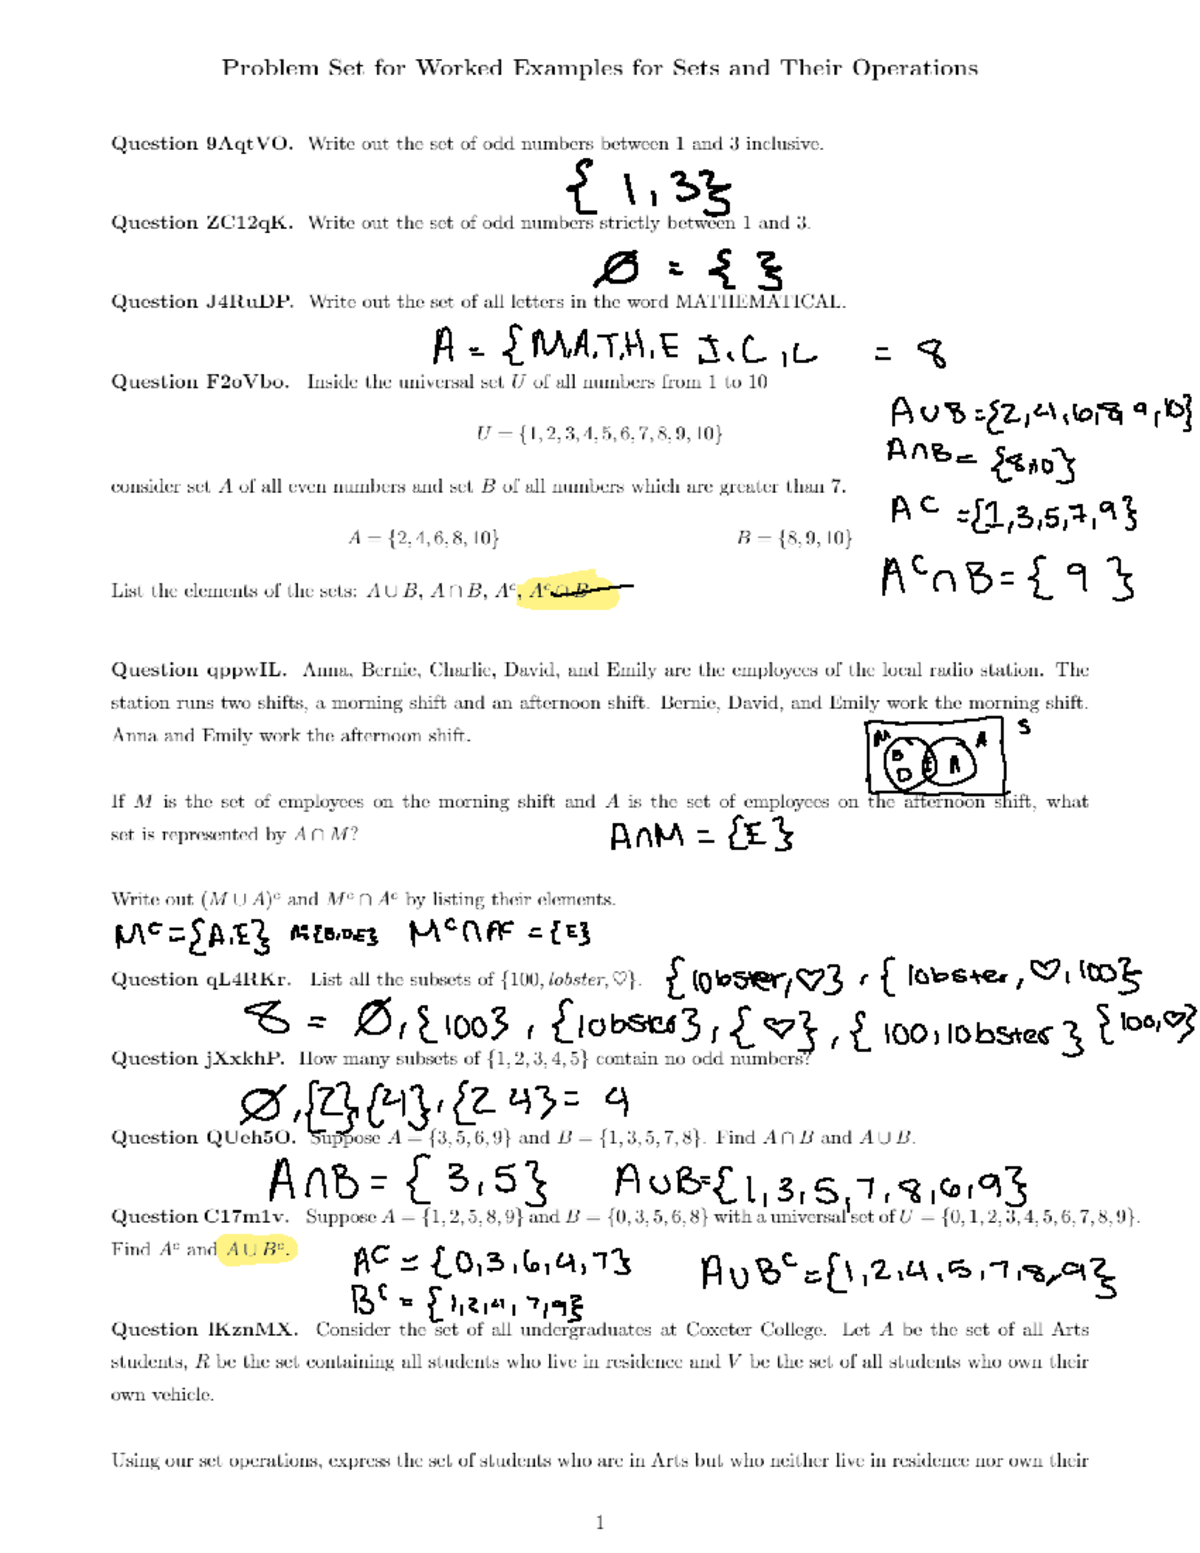 Problem Set for Worked Examples for Sets and Their Operations
Question 9AqtVO. Write out the set of odd numbers between 1 and 3 inclusive.
{ 1, 3}
Question ZC12qK. Write out the set of odd numbers strictly between 1 and 3.
Ø = { }
Question J4RuDP. Write out the set of all letters in the word MATHEMATICAL.
A = {M,A,T,H,E I,C,L = 8
Question F2oVbo. Inside the universal set U of all numbers from 1 to 10
A∪B={2,4,6,8,9,10}
U = {1, 2, 3, 4, 5, 6, 7, 8, 9, 10}
A∩B= {8,10}
consider set A of all even numbers and set B of all numbers which are greater than 7.
Aᶜ={1,3,5,7,9}
A = {2, 4, 6, 8, 10} B = {8, 9, 10}
Aᶜ∩B={ 9 }
List the elements of the sets: A ∪ B, A ∩ B, Aᶜ, Aᶜ ∩ B
Question qppwIL. Anna, Bernie, Charlie, David, and Emily are the employees of the local radio station. The
station runs two shifts, a morning shift and an afternoon shift. Bernie, David, and Emily work the morning shift.
Anna and Emily work the afternoon shift.
M A S
B E A
D
If M is the set of employees on the morning shift and A is the set of employees on the afternoon shift, what
set is represented by A ∩ M?
A∩M = {E}
Write out (M ∪ A)ᶜ and Mᶜ ∩ Aᶜ by listing their elements.
Mᶜ={A,E} A={B,D,E} Mᶜ∩Aᶜ = {E}
Question qL4RKr. List all the subsets of {100, lobster, ♡}. {lobster,♡}, {lobster,♡,100}
8 = Ø, {100}, {lobster}, {♡}, {100,lobster} {100,♡}
Question jXxkhP. How many subsets of {1, 2, 3, 4, 5} contain no odd numbers?
Ø, {2},{4}, {2 4} = 4
Question QUeh5O. Suppose A = {3, 5, 6, 9} and B = {1, 3, 5, 7, 8}. Find A ∩ B and A ∪ B.
A∩B = { 3,5} A∪B={1,3,5,7,8,6,9}
Question C17m1v. Suppose A = {1, 2, 5, 8, 9} and B = {0, 3, 5, 6, 8} with a universal set of U = {0, 1, 2, 3, 4, 5, 6, 7, 8, 9}.
Find Aᶜ and A ∪ Bᶜ.
Aᶜ = {0,3,6,4,7} A∪Bᶜ={1,2,4,5,7,8,9}
Bᶜ = {1,2,4,7,9}
Question lKznMX. Consider the set of all undergraduates at Coxeter College. Let A be the set of all Arts
students, R be the set containing all students who live in residence and V be the set of all students who own their
own vehicle.
Using our set operations, express the set of students who are in Arts but who neither live in residence nor own their
1